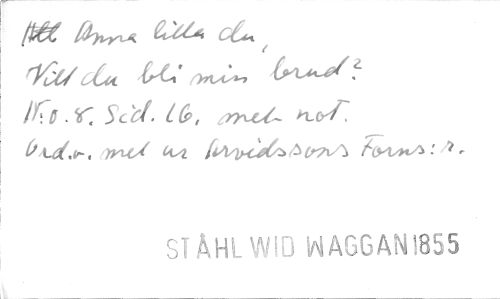 Anna lilla du,
Vill du bli min brud?
N:o 8. Sid. 16. mel. not.
Ord o. mel ur Arvidssons Forns: r.
STÅHL WID WAGGAN 1855